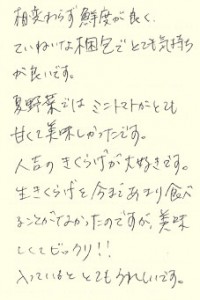 相変わらず鮮度が良く、
ていねいな梱包でとても気持ち
が良いです。
夏野菜ではミニトマトがとても
甘くて美味しかったです。
人吉のきくらげが大好きです。
生きくらげを今まであまり食べ
ることがなかったのですが、美味
しくてビックリ!!
入っているととてもうれしいです。